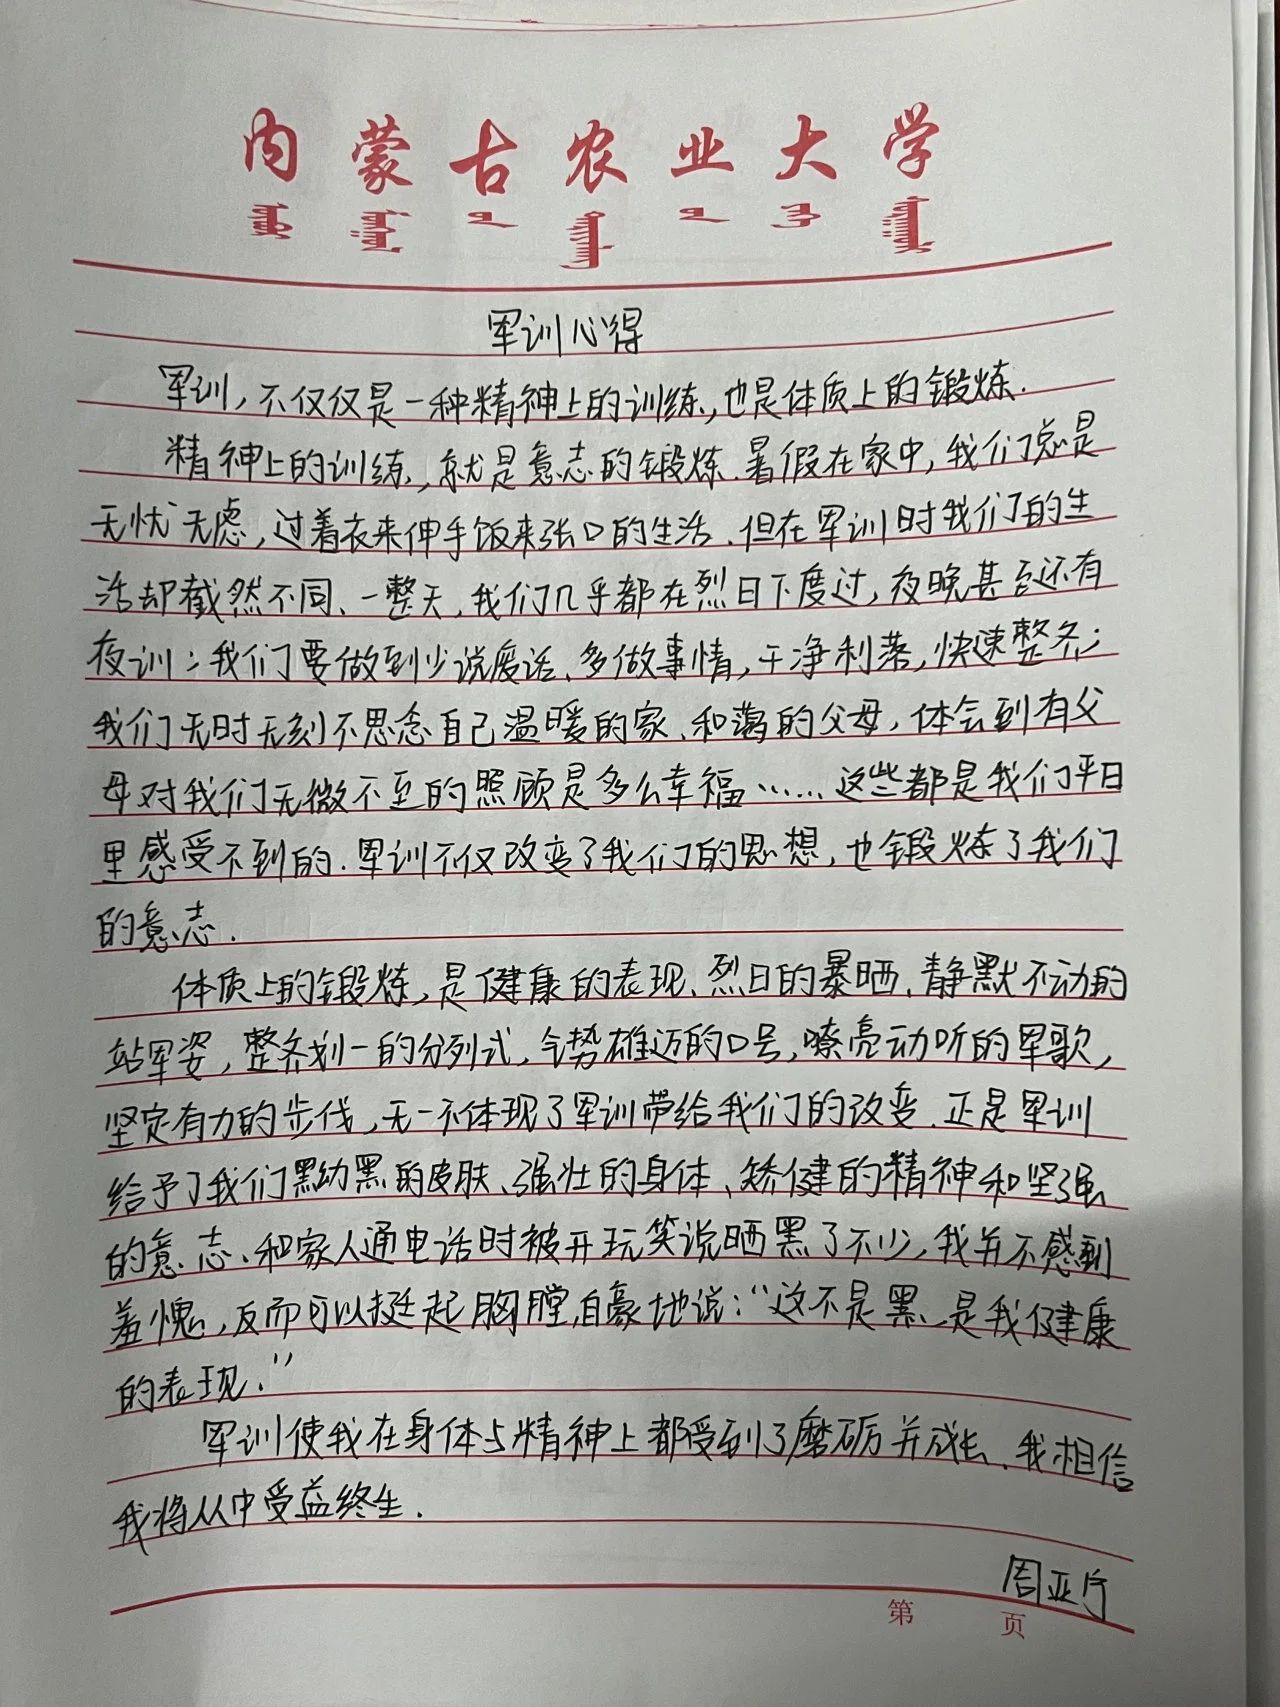 内蒙古农业大学
军训心得
军训,不仅仅是一种精神上的训练,也是体质上的锻炼.
精神上的训练,就是意志的锻炼.暑假在家中,我们总是
无忧无虑,过着衣来伸手饭来张口的生活.但在军训时我们的生
活却截然不同、一整天,我们几乎都在烈日下度过,夜晚甚至还有
夜训;我们要做到少说废话、多做事情,干净利落,快速整齐;
我们无时无刻不思念自己温暖的家、和蔼的父母,体会到有父
母对我们无微不至的照顾是多么幸福……这些都是我们平日
里感受不到的.军训不仅改变了我们的思想,也锻炼了我们
的意志.
体质上的锻炼,是健康的表现、烈日的暴晒、静默不动的
站军姿,整齐划一的分列式,气势雄迈的口号,嘹亮动听的军歌,
坚定有力的步伐,无一不体现了军训带给我们的改变.正是军训
给予了我们黑黝黑的皮肤、强壮的身体、矫健的精神和坚强
的意志、和家人通电话时被开玩笑说晒黑了不少,我并不感到
羞愧,反而可以挺起胸膛,自豪地说:“这不是黑、是我健康
的表现.”
军训使我在身体与精神上都受到了磨砺并成长.我相信
我将从中受益终生.
周亚
第 页